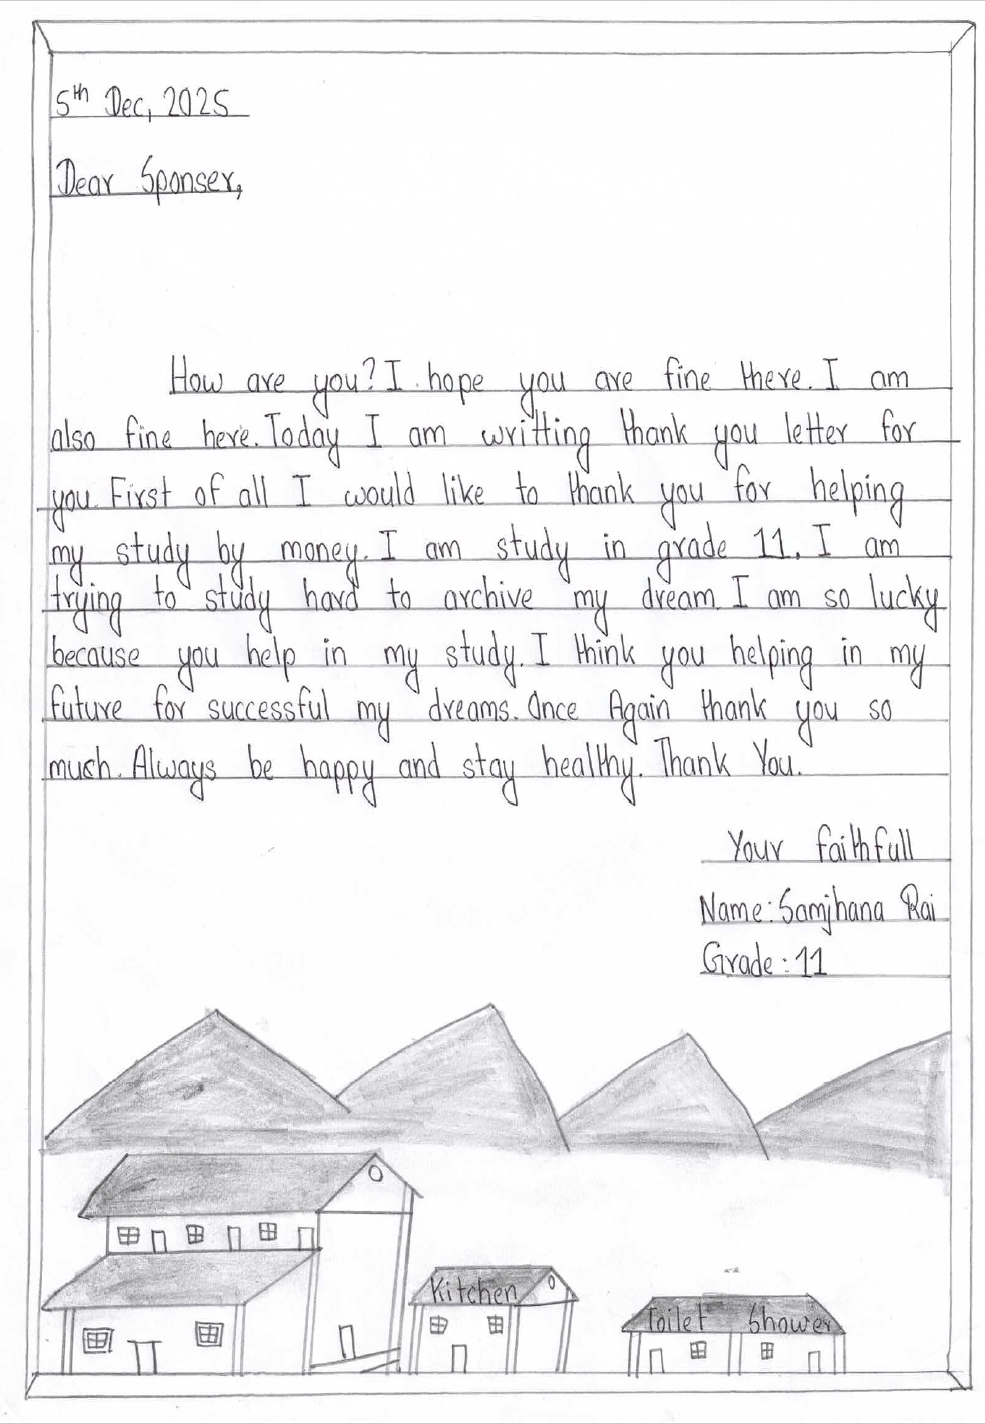 5th Dec, 2025
Dear Sponser,
How are you? I hope you are fine there. I am
also fine here. Today I am writting thank you letter for
you. First of all I would like to thank you for helping
my study by money. I am study in grade 11. I am
trying to study hard to archive my dream. I am so lucky
because you help in my study. I think you helping in my
future for successful my dreams. Once Again thank you so
much. Always be happy and stay healthy. Thank You.
Your faithfull
Name: Samjhana Rai
Grade: 11
Kitchen
Toilet Shower